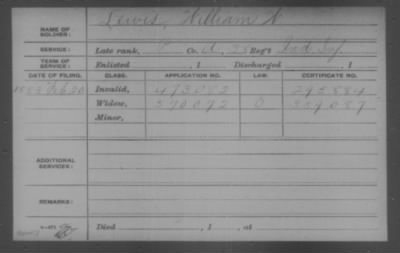 NAME OF SOLDIER: Lewis, William N
SERVICE: Late rank, P Co. A, Reg't Ind Inf
TERM OF SERVICE: Enlisted , 1 Discharged , 1
DATE OF FILING. CLASS. APPLICATION NO. LAW. CERTIFICATE NO.
Invalid, 473082 295884
Widow, 570092 D 389087
Minor,
ADDITIONAL SERVICES:
REMARKS:
Died , 1 , at